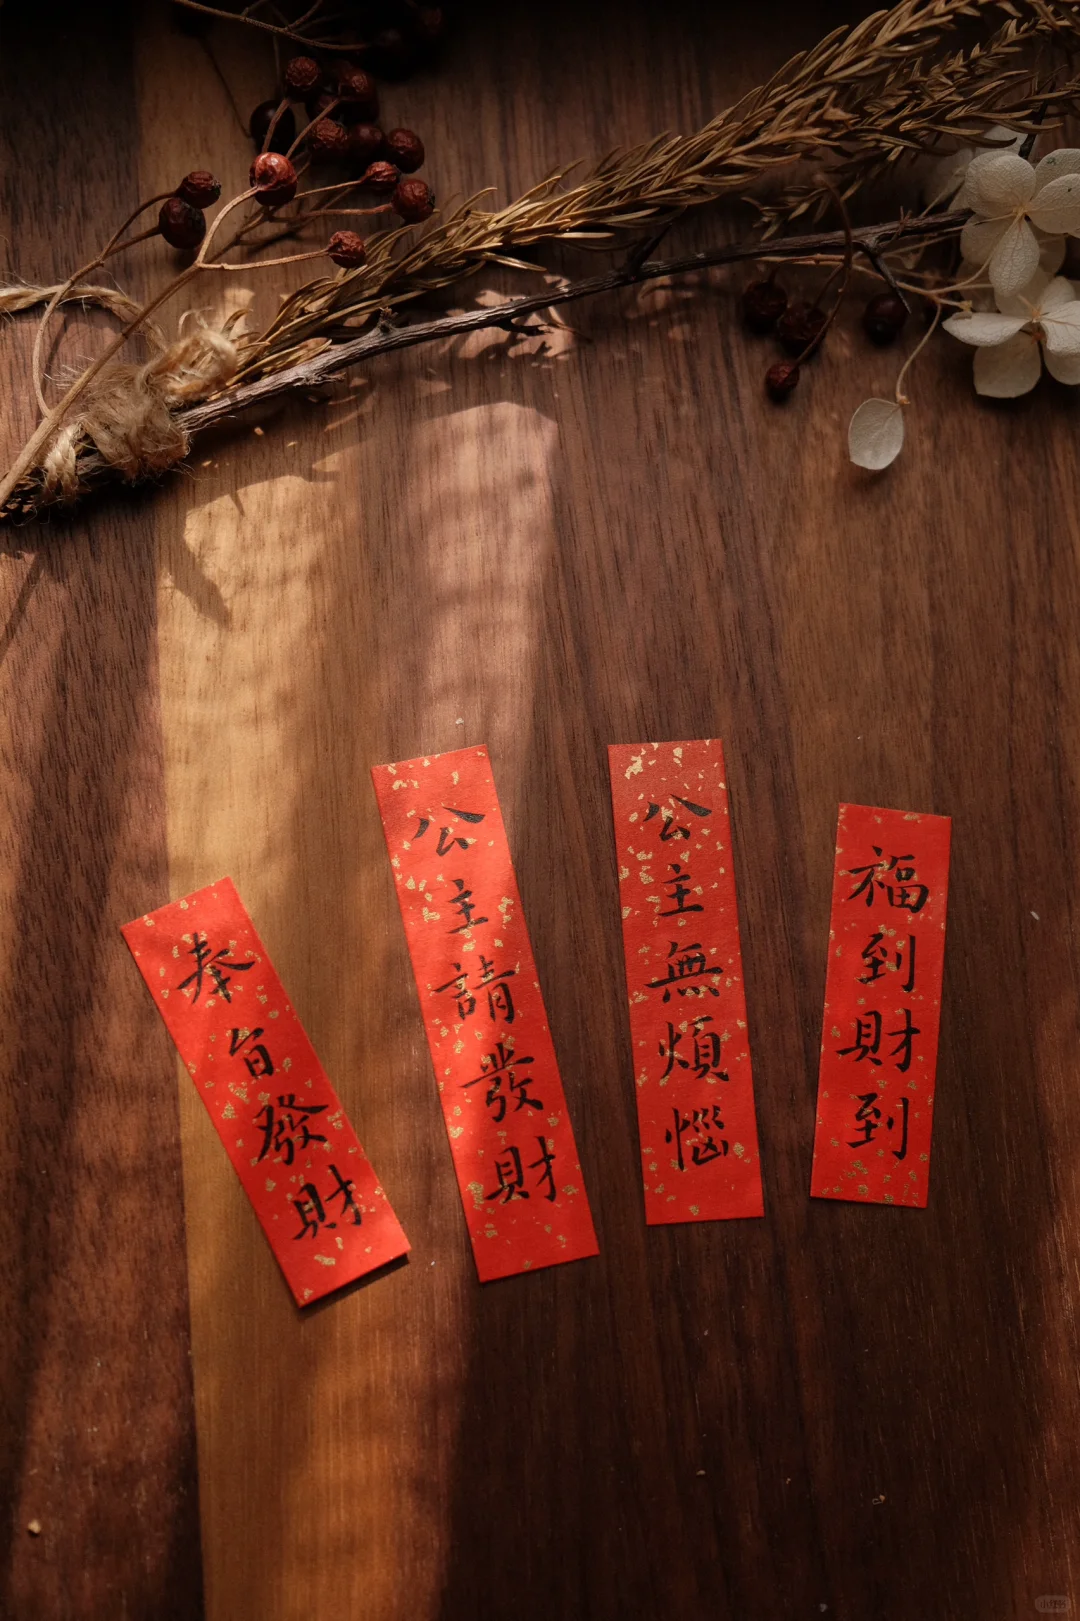 奉旨發財
公主請發財
公主無煩惱
福到財到